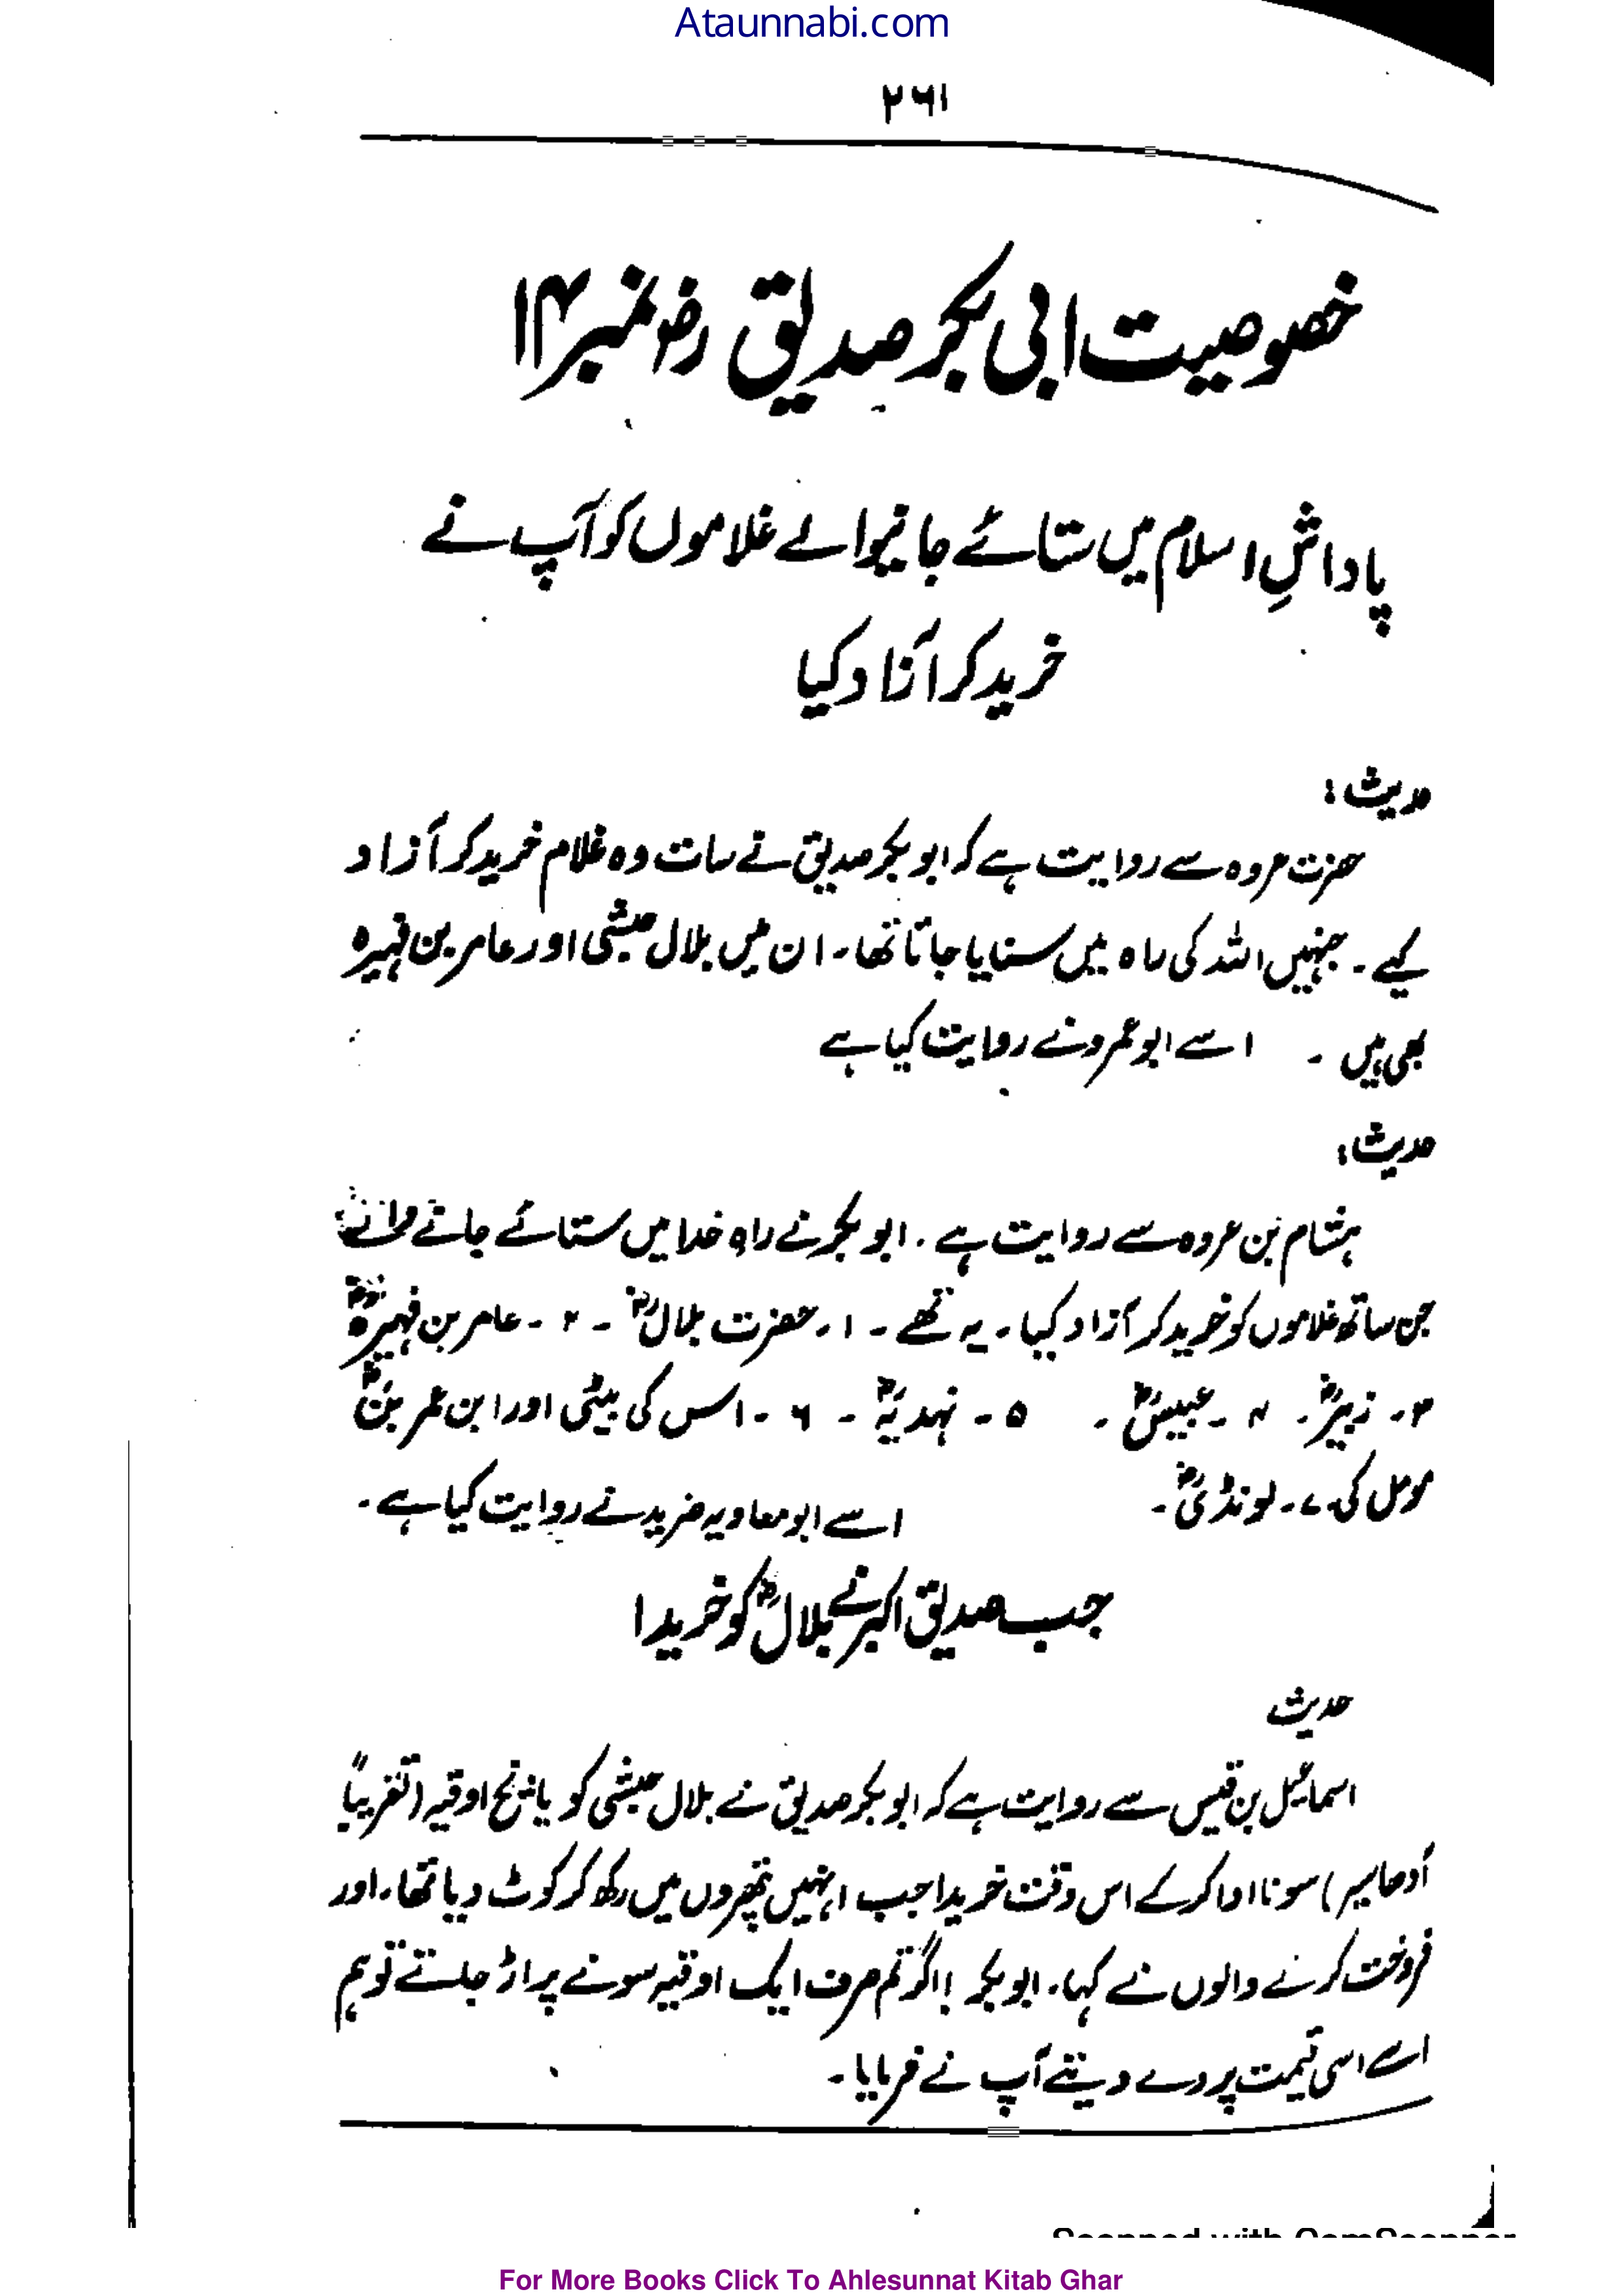 Ataunnabi.com
۲۶۱
خصوصیت ابی بکر صدیق رضؓ نمبر ۱۴
پاداشِ اسلام میں ستائے جانیوالے غلاموں کو آپ نے
خرید کر آزاد کیا
حدیث:
حضرت عروہ سے روایت ہے کہ ابو بکر صدیق نے سات وہ غلام خرید کر آزاد
کیے۔ جنہیں اللہ کی راہ میں ستایا جاتا تھا۔ ان میں بلال حبشی اور عامر بن فہیرہ
بھی ہیں۔ اسے ابو عمرو نے روایت کیا ہے
حدیث:
ہشام بن عروہ سے روایت ہے۔ ابو بکر نے راہ خدا میں ستائے جانے والے
جن ساتھ غلاموں کو خرید کر آزاد کیا۔ یہ تھے۔ ۱۔ حضرت بلالؓ۔ ۲۔ عامر بن فہیرہؓ
۳۔ زبیرؓ۔ ۴۔ عبیسؓ۔ ۵۔ نہدیہؓ۔ ۶۔ اس کی بیٹی اور ابن عمر بن
مومل کی۔ ۷۔ لونڈیؓ۔ اسے ابو معاویہ ضرید نے روایت کیا ہے۔
جب صدیق اکبر نے بلالؓ کو خریدا
حدیث
اسماعیل بن قیس سے روایت ہے کہ ابو بکر صدیق نے بلال حبشی کو پانچ اوقیہ (تقریباً
آدھا سیر) سونا ادا کر کے اس وقت خریدا جب انہیں پتھروں میں رکھ کر کوٹ دیا تھا۔ اور
فروخت کرنے والوں نے کہا۔ ابو بکر! اگر تم صرف ایک اوقیہ سونے پر اڑ جاتے تو ہم
اسے اسی قیمت پر دے دیتے آپ نے فرمایا۔
Scanned with CamScanner
For More Books Click To Ahlesunnat Kitab Ghar